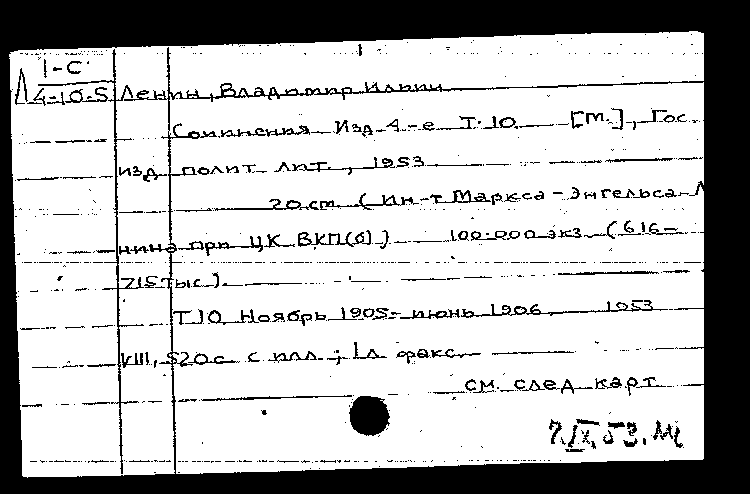 1-С
Л 4-10-5 Ленин, Владимир Ильич
Сочинения Изд 4-е Т.10 [М.], Гос.
изд полит лит., 1953
20 см. (Ин-т Маркса-Энгельса-Л
нина при ЦК ВКП(б)) 100.000 экз (616-
715 тыс).
Т.10. Ноябрь 1905-июнь 1906. 1953
VIII, 520 с с илл.; 1 л факс.
см. след карт
7.IX.53.